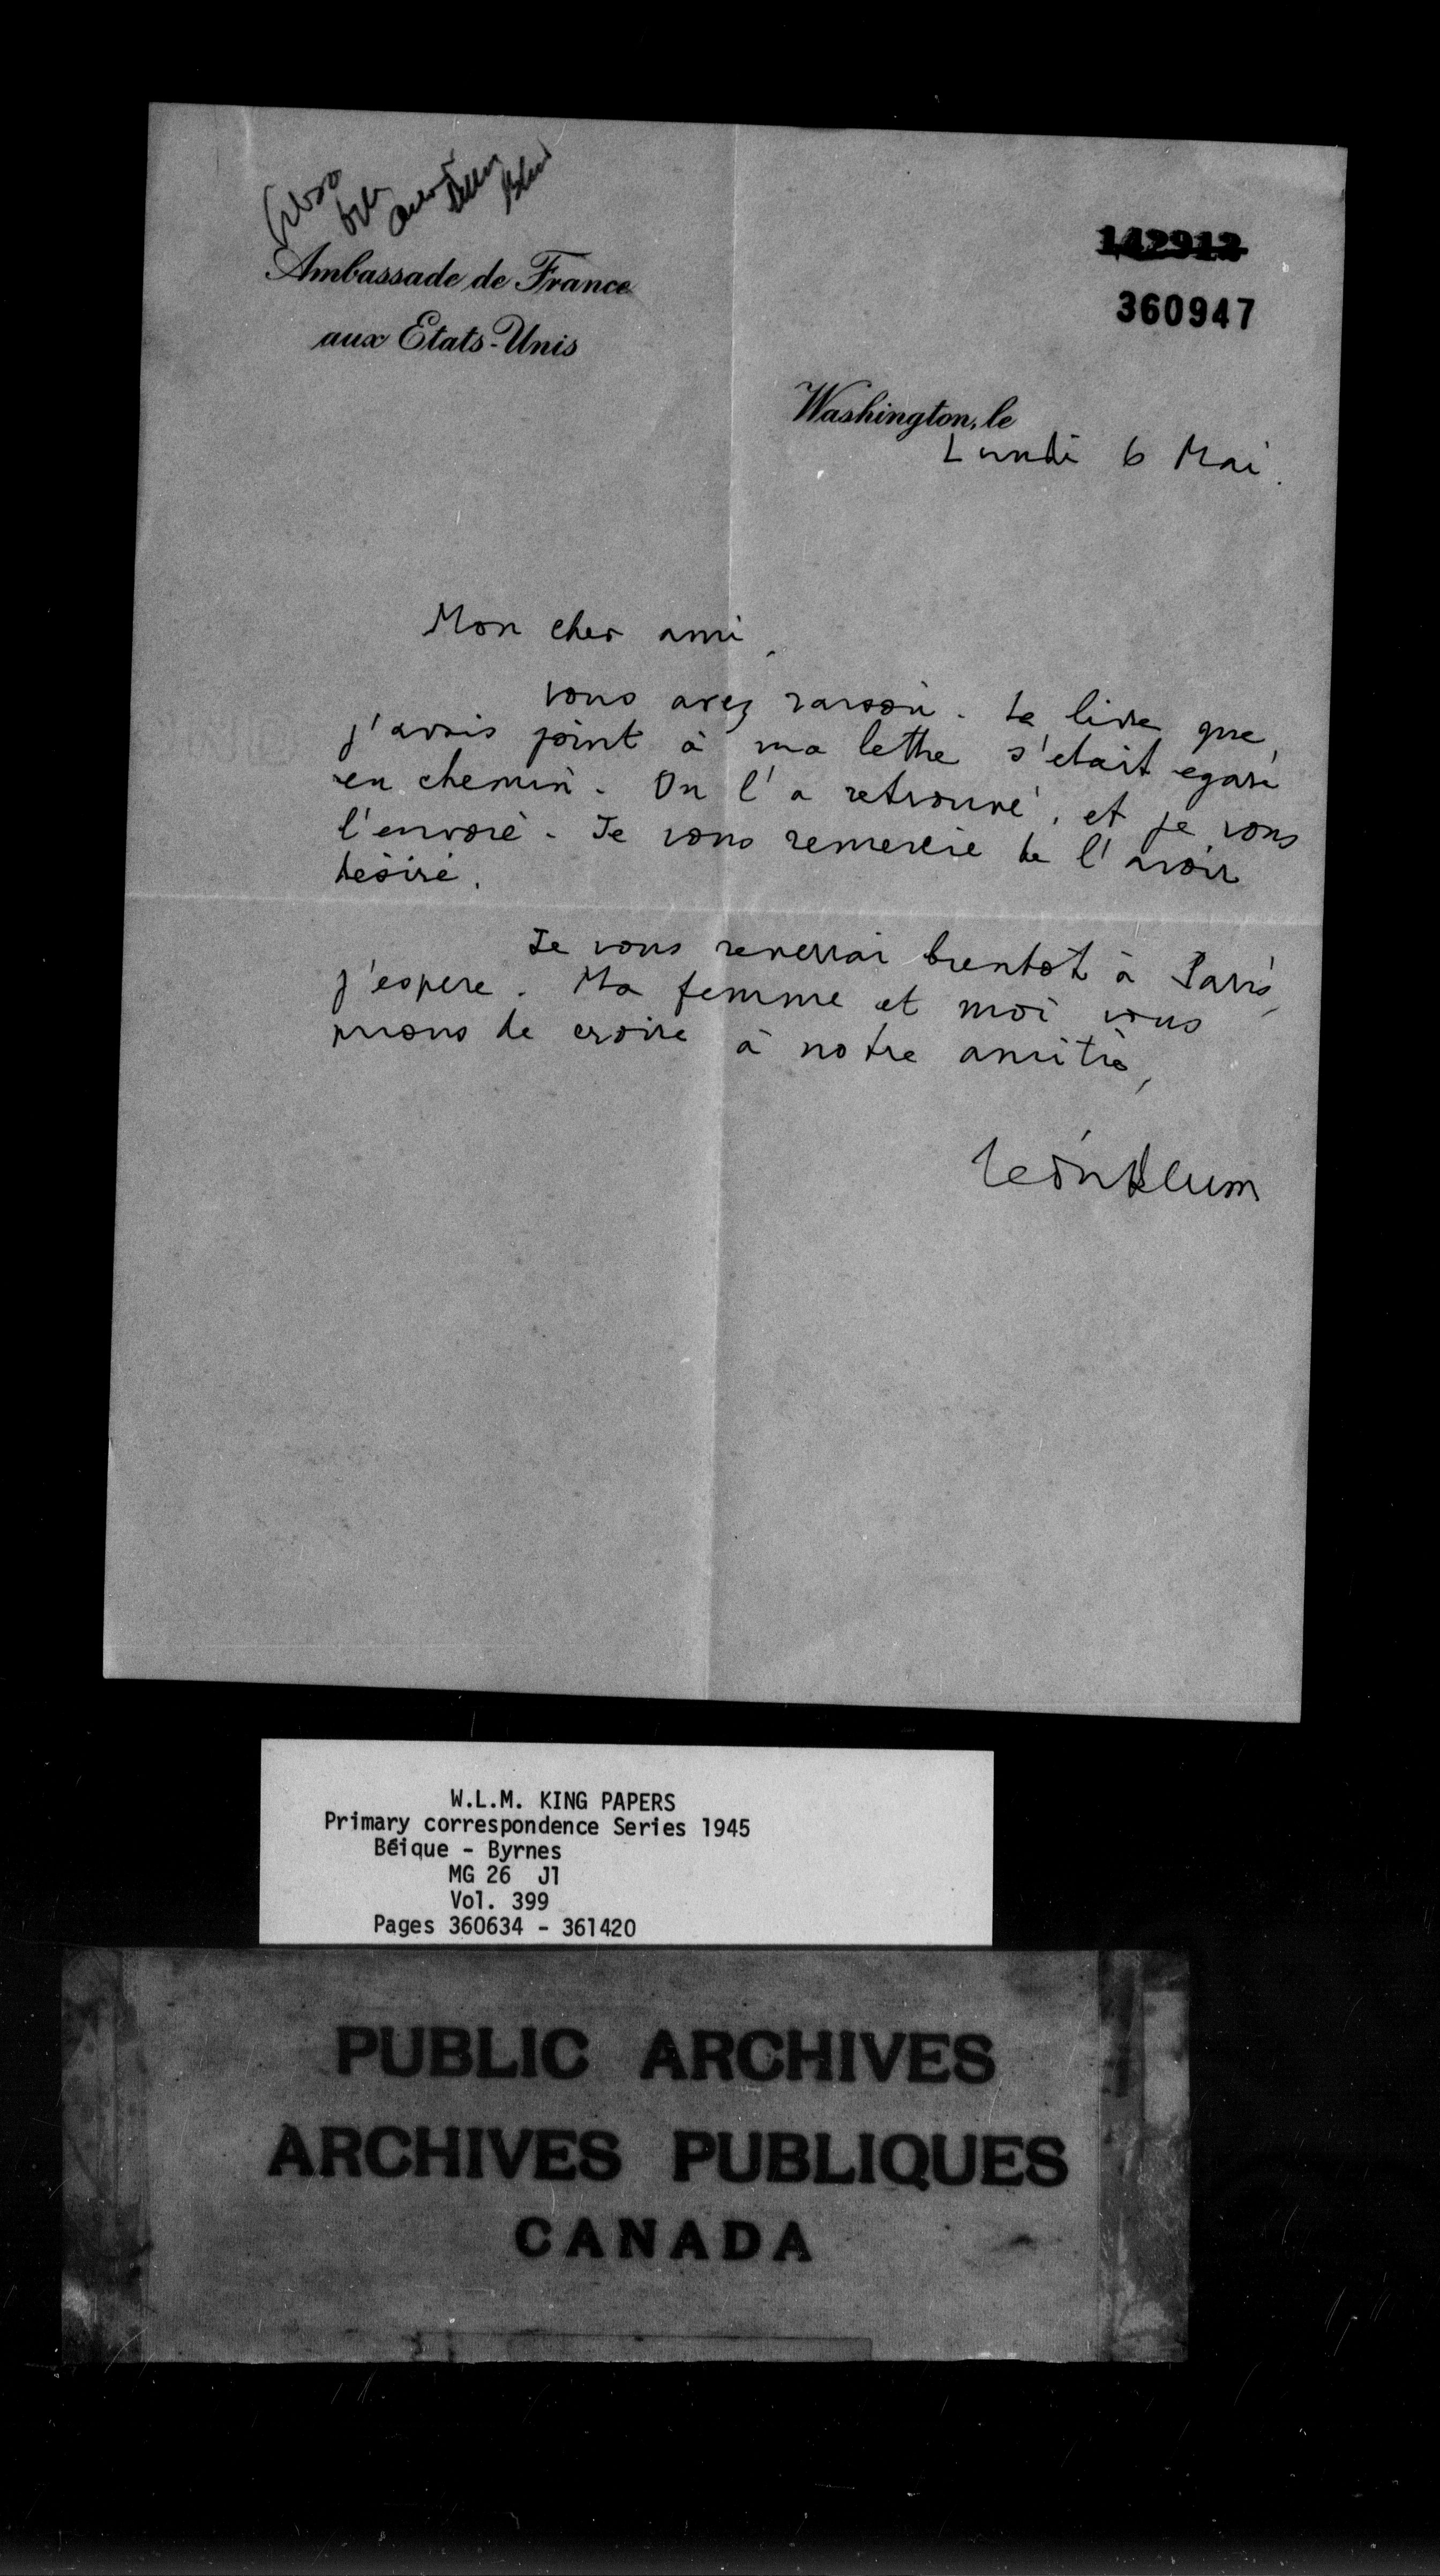 Ambassade de France
aux Etats-Unis
142912
360947
Washington, le
Lundi 6 Mai.
Mon cher ami,
vous avez raison. Le livre que
j'avais joint à ma lettre s'etait egaré
en chemin. On l'a retrouvé, et je vous
l'envoie. Je vous remercie de l'avoir
désiré.
Je vous reverrai bientot à Paris,
j'espere. Ma femme et moi vous
prions de croire à notre amitié,
Léon Blum
W.L.M. KING PAPERS
Primary correspondence Series 1945
Béique - Byrnes
MG 26 J1
Vol. 399
Pages 360634 - 361420
PUBLIC ARCHIVES
ARCHIVES PUBLIQUES
CANADA